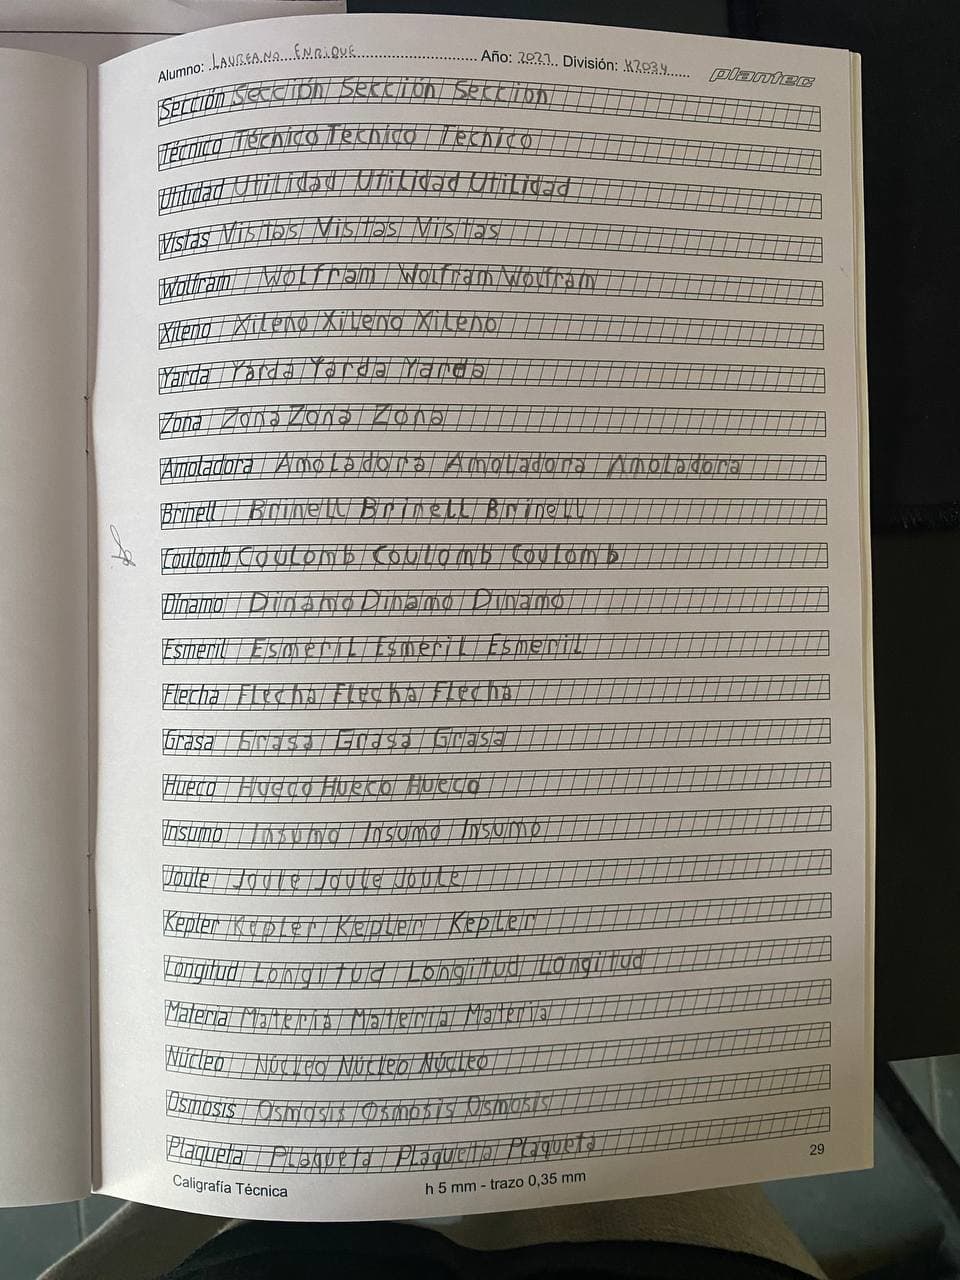 Alumno: LAUREANO ENRIQUE Año: 2022 División: K2034 plantec
Sección Sección Sección Sección
Técnico Técnico Técnico Técnico
Utilidad Utilidad Utilidad Utilidad
Vistas Vistas Vistas Vistas
Wolfram Wolfram Wolfram Wolfram
Xileno Xileno Xileno Xileno
Yarda Yarda Yarda Yarda
Zona Zona Zona Zona
Amoladora Amoladora Amoladora Amoladora
Brinell Brinell Brinell Brinell
Coulomb Coulomb Coulomb Coulomb
Dínamo Dinamo Dinamo Dinamo
Esmeril Esmeril Esmeril Esmeril
Flecha Flecha Flecha Flecha
Grasa Grasa Grasa Grasa
Hueco Hueco Hueco Hueco
Insumo Insumo Insumo Insumo
Joule Joule Joule Joule
Kepler Kepler Kepler Kepler
Longitud Longitud Longitud Longitud
Materia Materia Materia Materia
Núcleo Núcleo Núcleo Núcleo
Osmosis Osmosis Osmosis Osmosis
Plaqueta Plaqueta Plaqueta Plaqueta
29
Caligrafía Técnica h 5 mm - trazo 0,35 mm